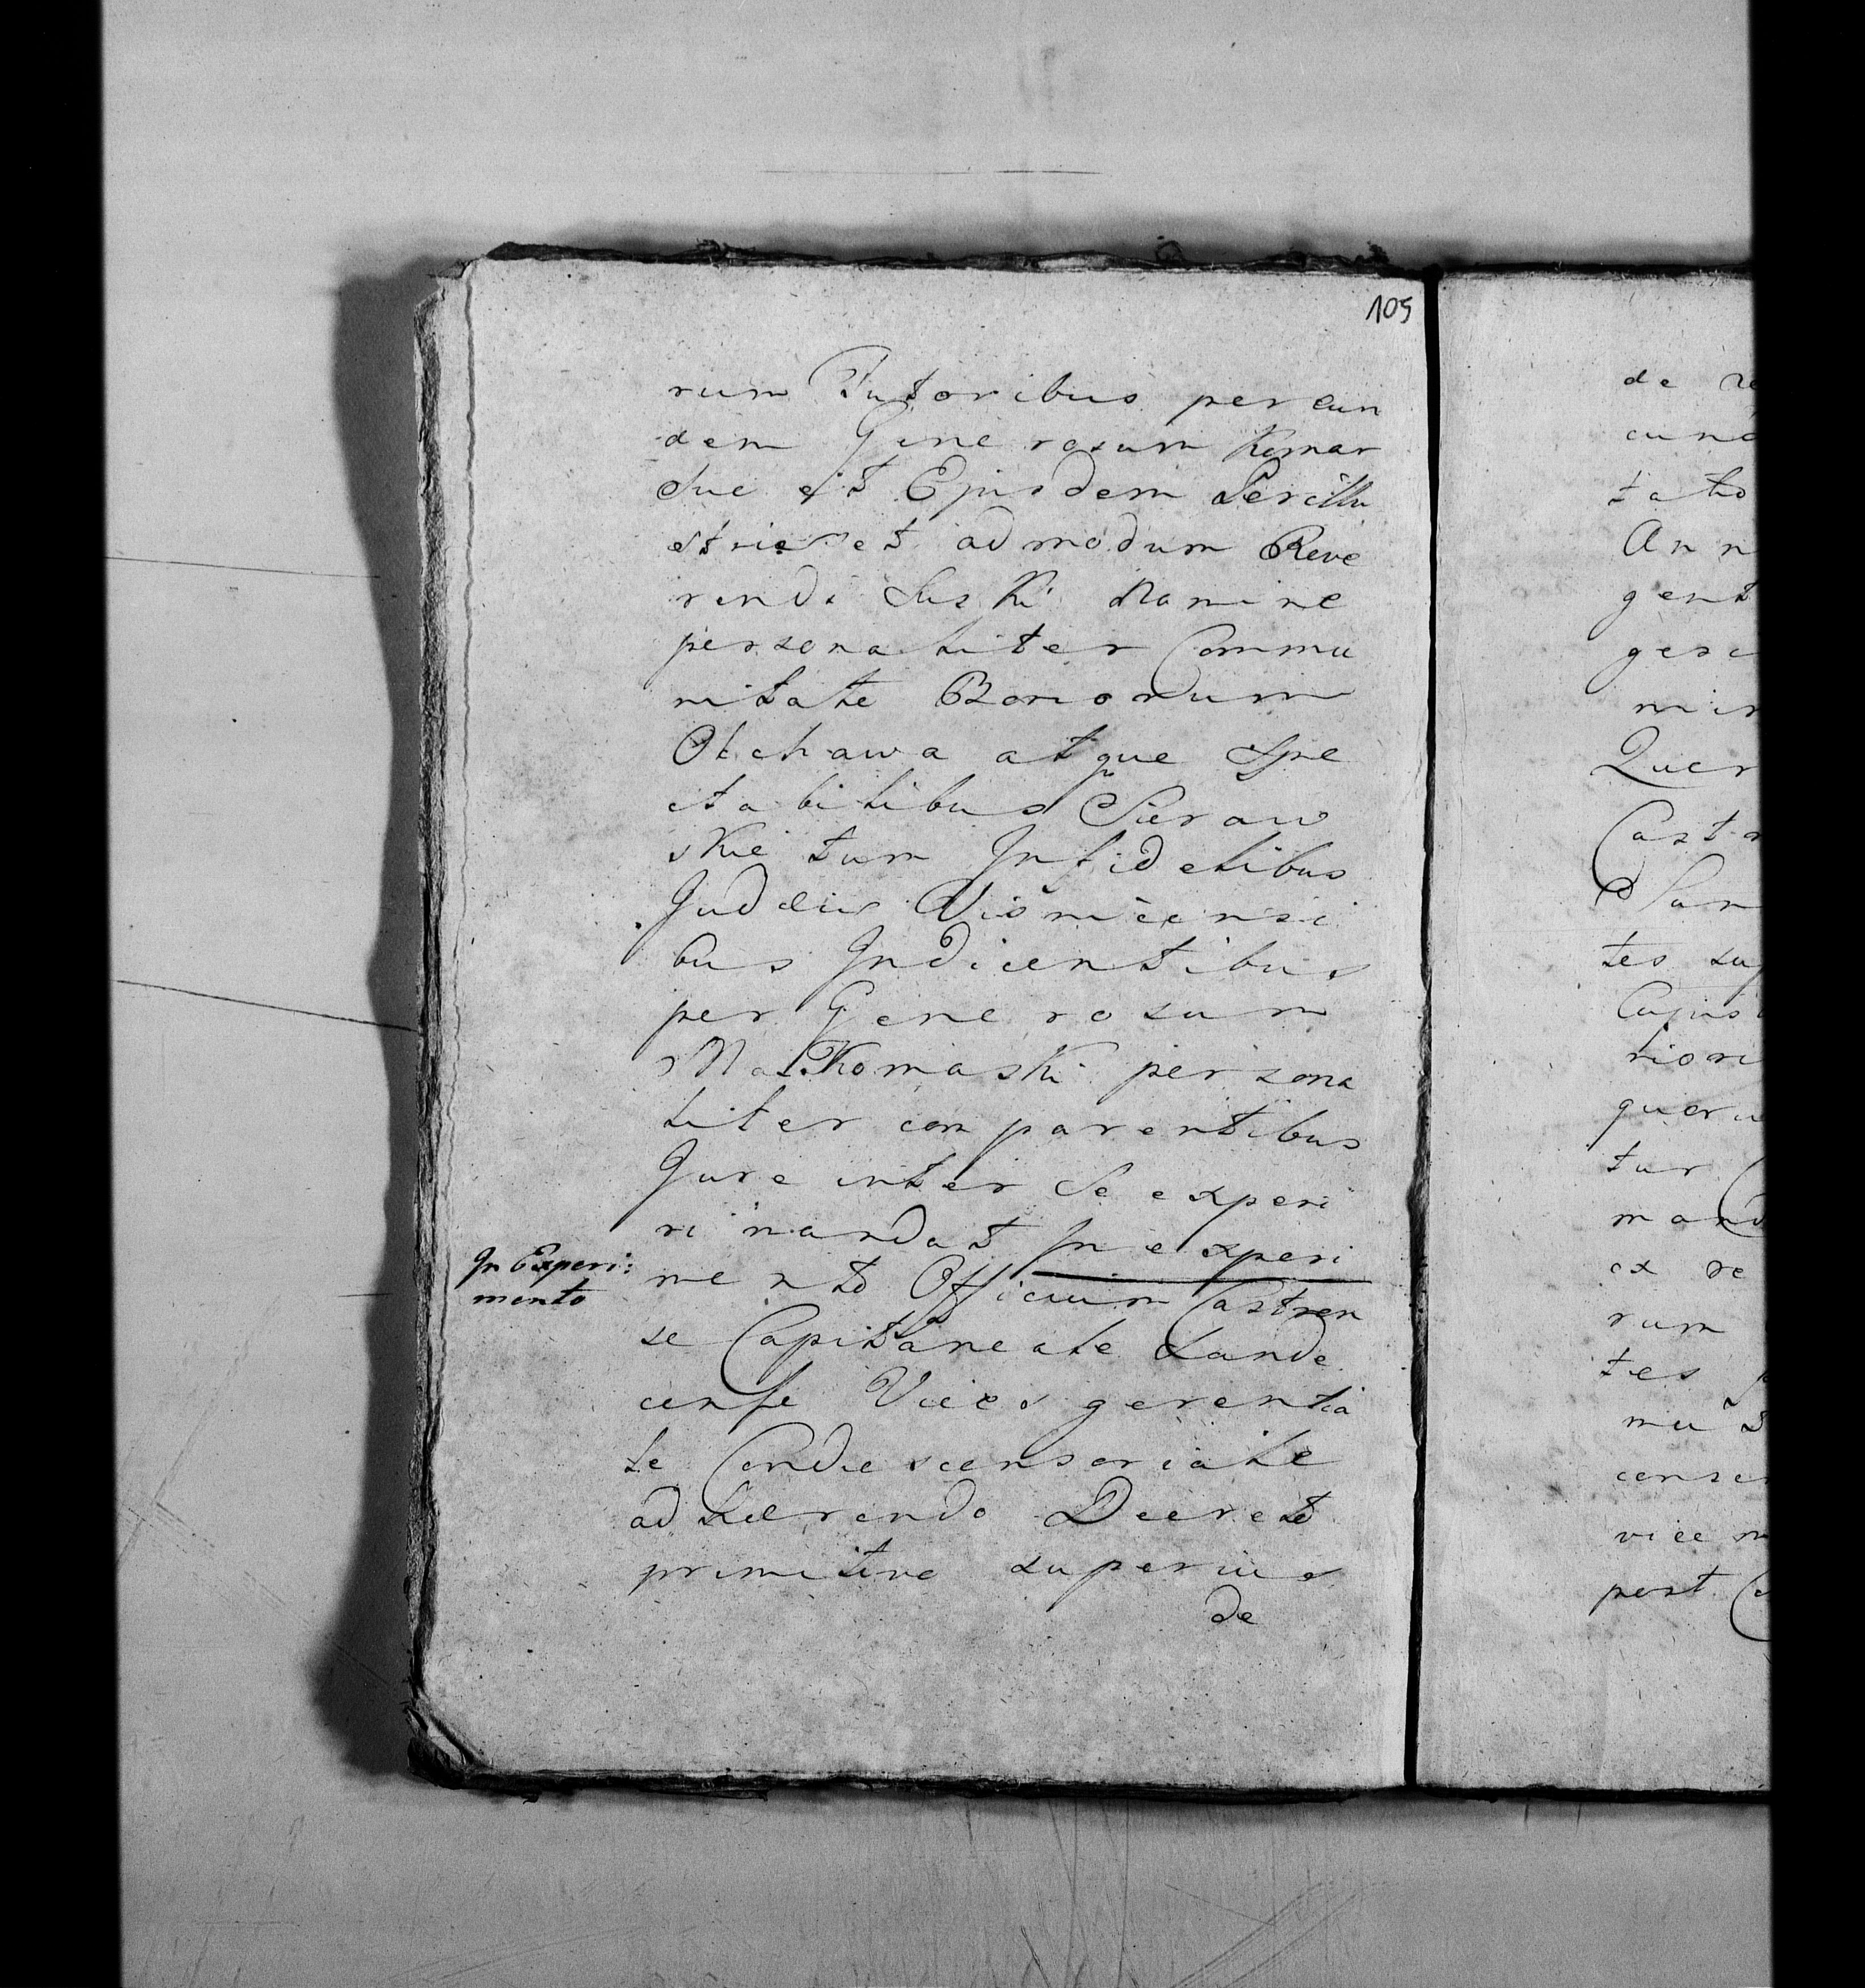 105
rum Tutoribus per eun
dem Generosum Komar
Suo et Ejusdem Perillu
stris et admodum Reve
rendi Suski Nomine
personaliter Commu
nitate Bonorum
Olchawa atque Spe
ctabilibus Sieraw
skie tum Infidelibus
Judæis Visnicensi
bus Indicentibus
per Generosum
Malkomaski persona
liter comparentibus
Jure inter Se experi
ri mandat In experi
In Experi:
mento
mento Officium Castren
se Capitaneale Sande
cense Vices gerentia
le Condescensoriale
adhærendo Decreto
primitivo superius
de
de re
cund
tatio
Ann
gent
gesi
Quer
Castr
San
tes sup
Cujus
riori
queru
tur
mand
ex re
rum
tes
conse
vice
post